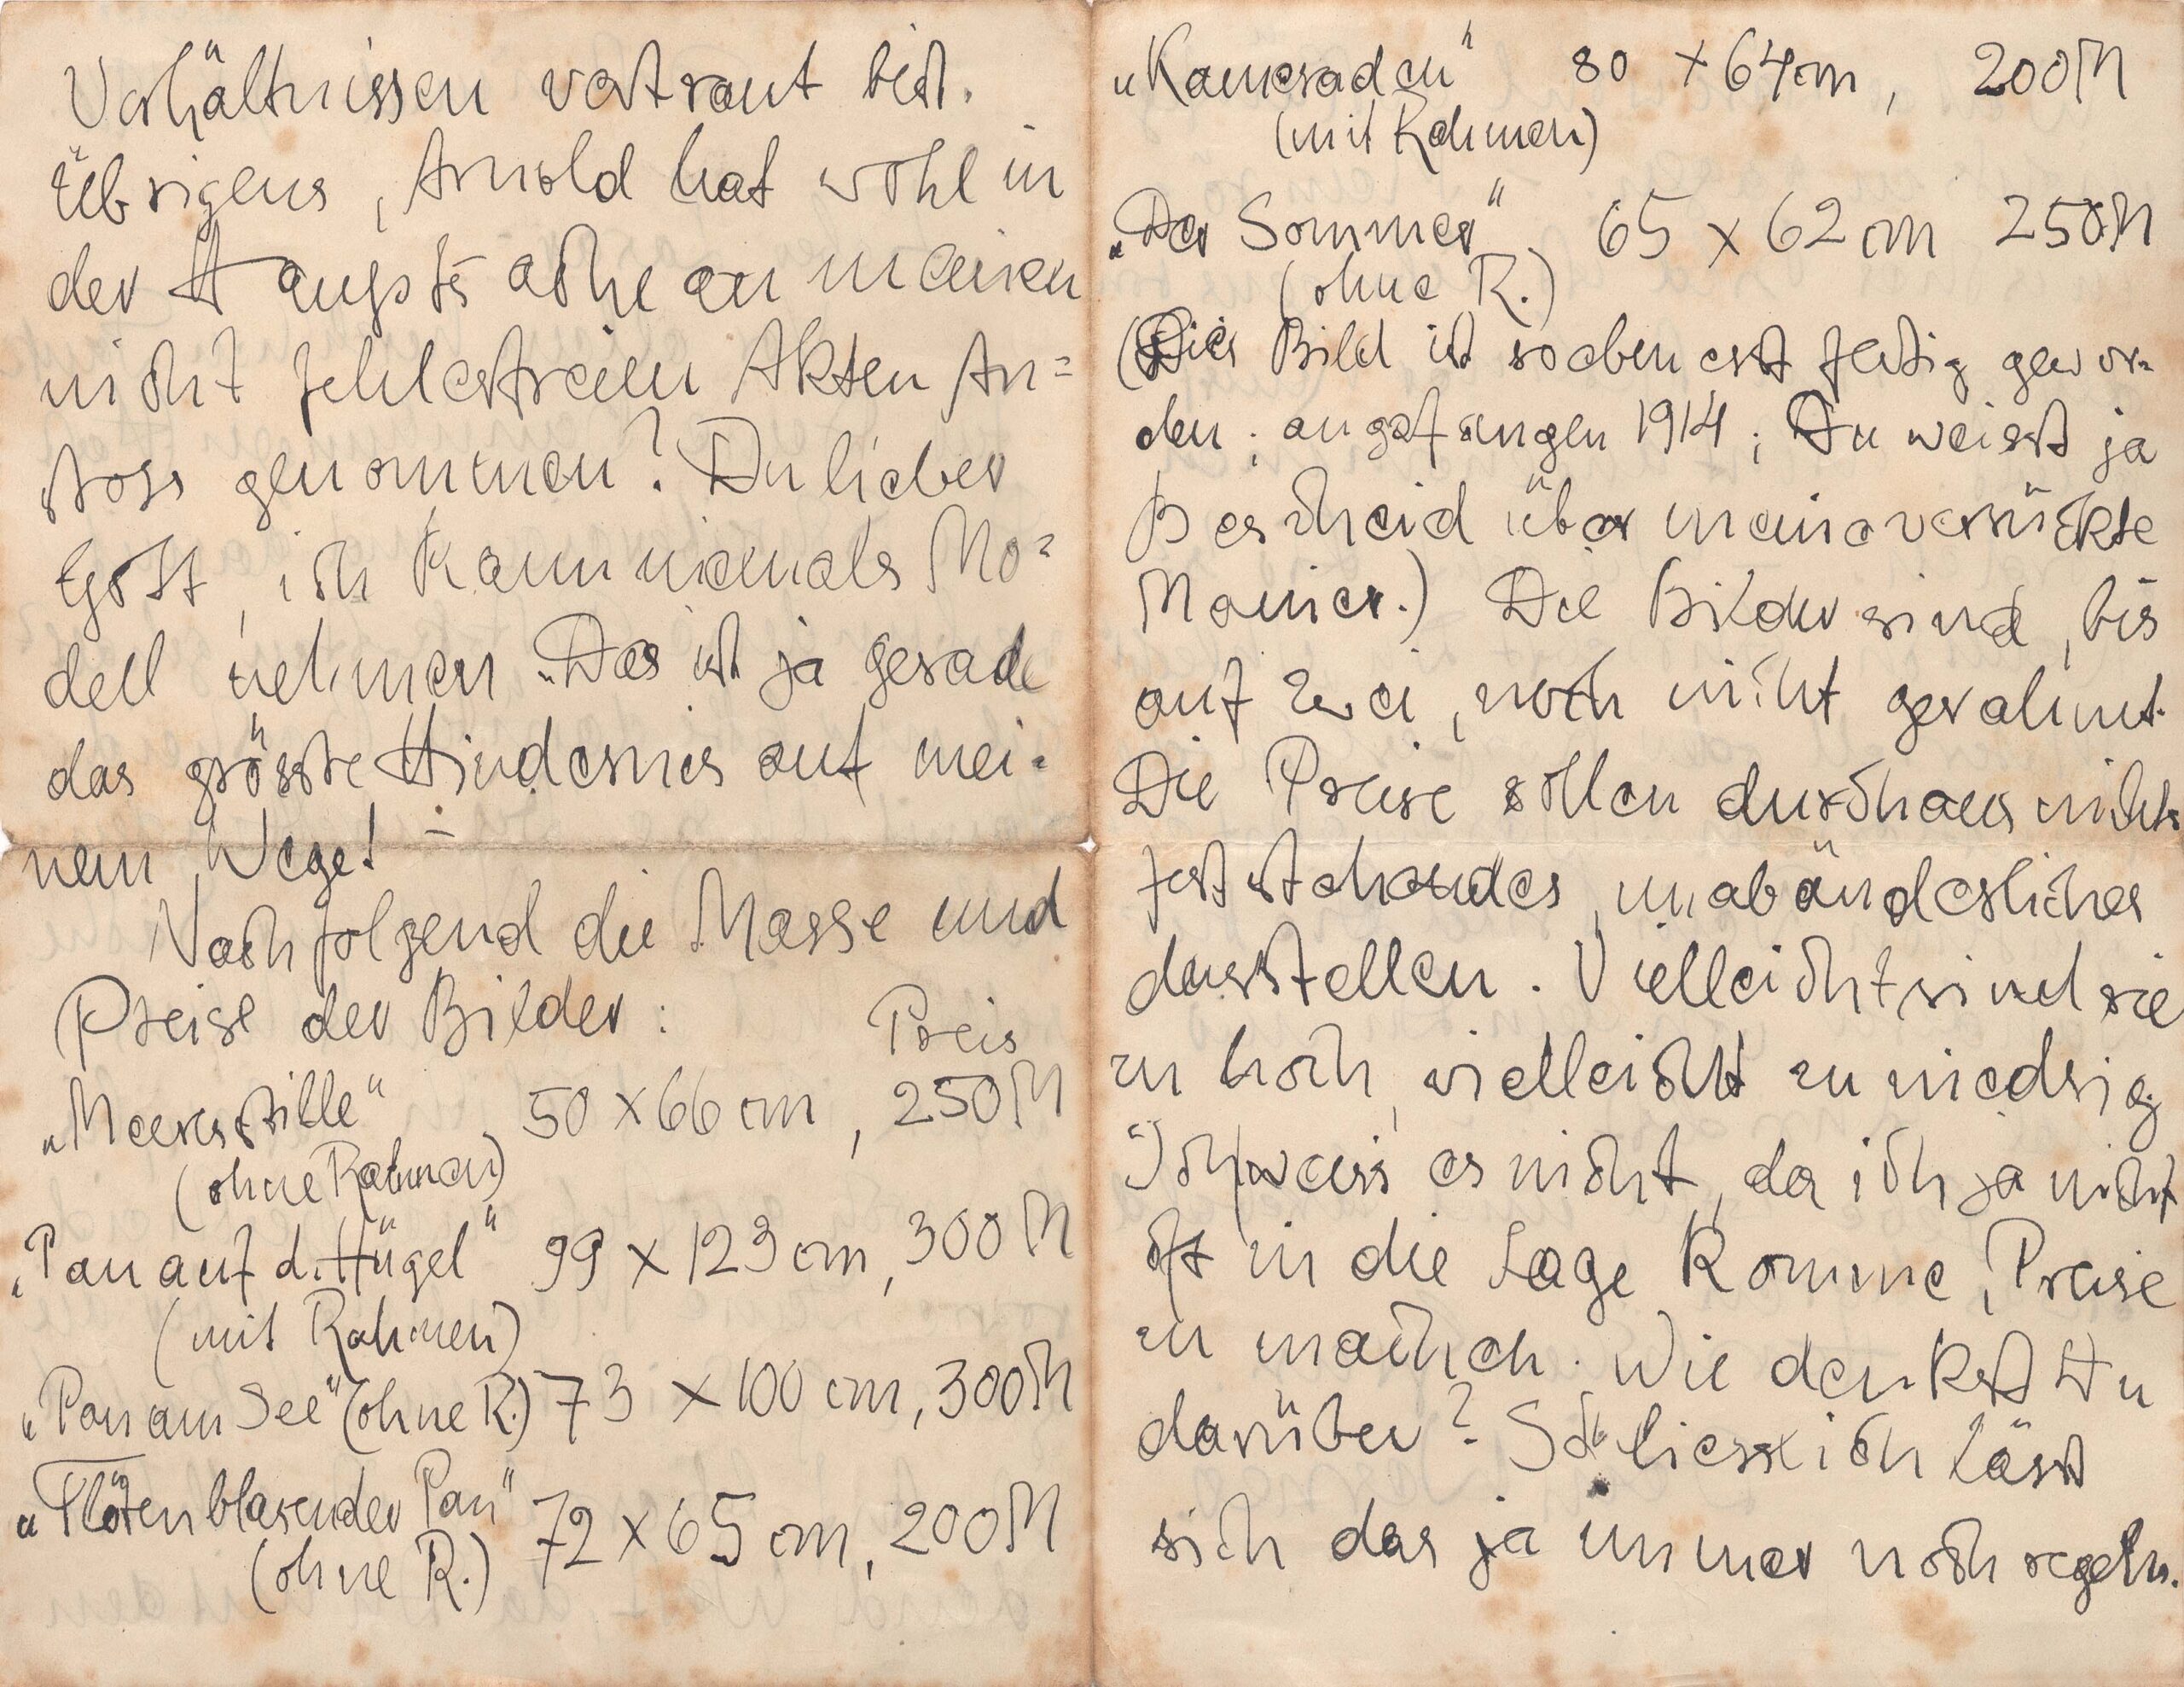 Verhältnissen vertraut bist.
Übrigens, Arnold hat wohl in
der Hauptsache an meinen
nicht fehlerfreien Akten An=
stoss genommen? Du lieber
Gott, ich kann niemals Mo=
dell nehmen. Das ist ja gerade
das grösste Hindernis auf mei=
nem Wege! –
Nachfolgend die Masse und
Preise der Bilder: Preis
„Meeresstille“, 50 x 66 cm, 250 M
(ohne Rahmen)
„Pan auf d. Hügel“ 99 x 123 cm, 300 M
(mit Rahmen)
„Pan am See“ (ohne R.) 73 x 100 cm, 300 M
„Flötenblasender Pan“ 72 x 65 cm, 200 M
(ohne R.)
„Kameraden“ 80 x 64 cm, 200 M
(mit Rahmen)
„Der Sommer“. 65 x 62 cm 250 M
(ohne R.)
(Dies Bild ist soeben erst fertig gewor=
den; angefangen 1914; Du weisst ja
Bescheid über meine verrückte
Manier.) Die Bilder sind, bis
auf zwei, noch nicht gerahmt.
Die Preise sollen durchaus nichts
feststehendes, unabänderliches
darstellen. Vielleicht sind sie
zu hoch, vielleicht zu niedrig
Ich weiss es nicht, da ich ja nicht
oft in die Lage komme, Preise
zu machen. Wie denkst Du
darüber? Schliesslich lässt
sich das ja immer noch regeln.